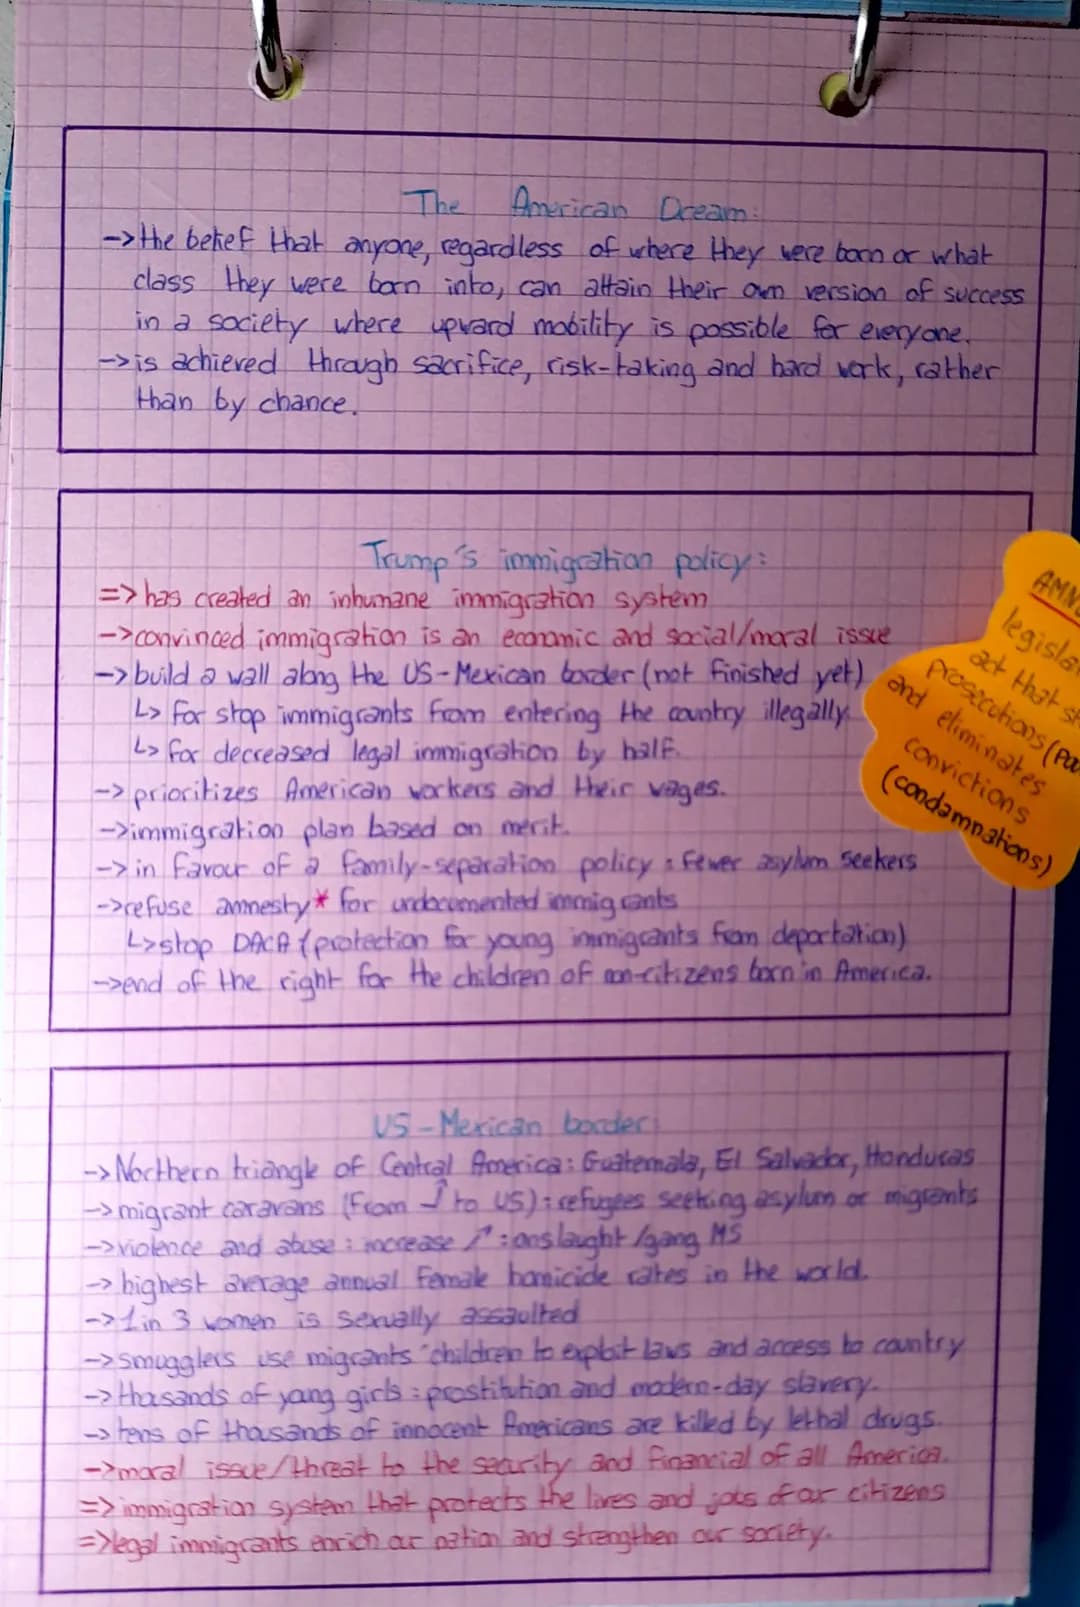 The American Dream:
->the belief that anyone, regardless of where they were born or what
class they were born into, can attain their own version of success
in a society where upward mobility is possible for everyone.
->is achieved through sacrifice, risk-taking and hard work, rather
than by chance.
Trump's immigration policy:
=> has created an inhumane immigration system
->convinced immigration is an economic and social/moral issue
->build a wall along the US-Mexican border (not finished yet)
↳ for stop immigrants from entering the country illegally.
↳ for decreased legal immigration by half.
-> prioritizes American workers and their wages.
->immigration plan based on merit.
-> in favour of a family-separation policy: fewer asylum seekers
->refuse amnesty* for undocumented immigrants
↳stop DACA (protection for young immigrants from deportation)
->end of the right for the children of non-citizens born in America.
AMN
legisla
act that st
prosecutions (Pou
and eliminates
convictions
(condamnations)
US-Mexican border
-> Northern triangle of Central America: Guatemala, El Salvador, Honduras
->migrant caravans (from ↑ to US): refugees seeking asylum or migrants
->violence and abuse: increase ↗: onslaught/gang MS
-> highest average annual female homicide rates in the world.
->1 in 3 women is sexually assaulted
->smugglers use migrants'children to exploit laws and access to country
-> thousands of young girls: prostitution and modern-day slavery.
-> tens of thousands of innocent Americans are killed by lethal drugs.
->moral issue/threat to the security and financial of all America.
=> immigration system that protects the lives and jobs of our citizens
=>legal immigrants enrich our nation and strengthen our society.